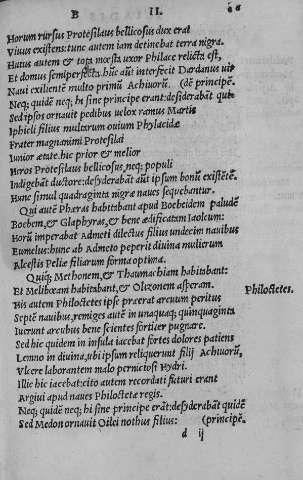 B II. 66
Horum rursus Protesilaus bellicosus dux erat
Viuus existens: tunc autem iam detinebat terra nigra.
Huius autem & tota mœsta uxor Philace relicta est,
Et domus semiperfecta. hūc aūt interfecit Dardanus uir
Naui exilientē multo primū Achiuorū. (dē principē.
Neq; quidē neq; hi sine principe erant: desiderabāt quī
Sed ipsos ornauit pedibus uelox ramus Martis
Iphicli filius multarum ouium Phylacidæ
Frater magnanimi Protesilai
Iunior ætate. hic prior & melior
Heros Protesilaus bellicosus, neq; populi
Indigebāt ductore: desyderabāt aūt ipsum bonū existētē.
Hunc simul quadraginta nigræ naues sequebantur.
Qui autē Phæras habitabant apud Bœbeidem paludē
Bœben, & Glaphyras, & bene ædificatam Iaolcum:
Horū imperabat Admeti dilectus filius undecim nauibus
Eumelus: hunc ab Admeto peperit diuina mulierum
Alcestis Peliæ filiarum forma optima.
Quiq; Methonem, & Thaumachiam habitabant:
Et Melibœam habitabant, & Olizonem asperam.
His autem Philoctetes ipse præerat arcuum peritus Philoctetes.
Septē nauibus, remiges autē in unaquaq; quinquaginta
Iuerunt arcubus bene scientes fortiter pugnare.
Sed hic quidem in insula iacebat fortes dolores patiens
Lemno in diuina, ubi ipsum reliquerunt filij Achiuorū,
Vlcere laborantem malo perniciosi Hydri.
Illic hic iacebat: cito autem recordati futuri erant
Argiui apud naues Philoctetæ regis.
Neq; quidē neq; hi sine principe erāt: desyderabāt quidē
Sed Medon ornauit Oilei nothus filius: (principē.
d ij